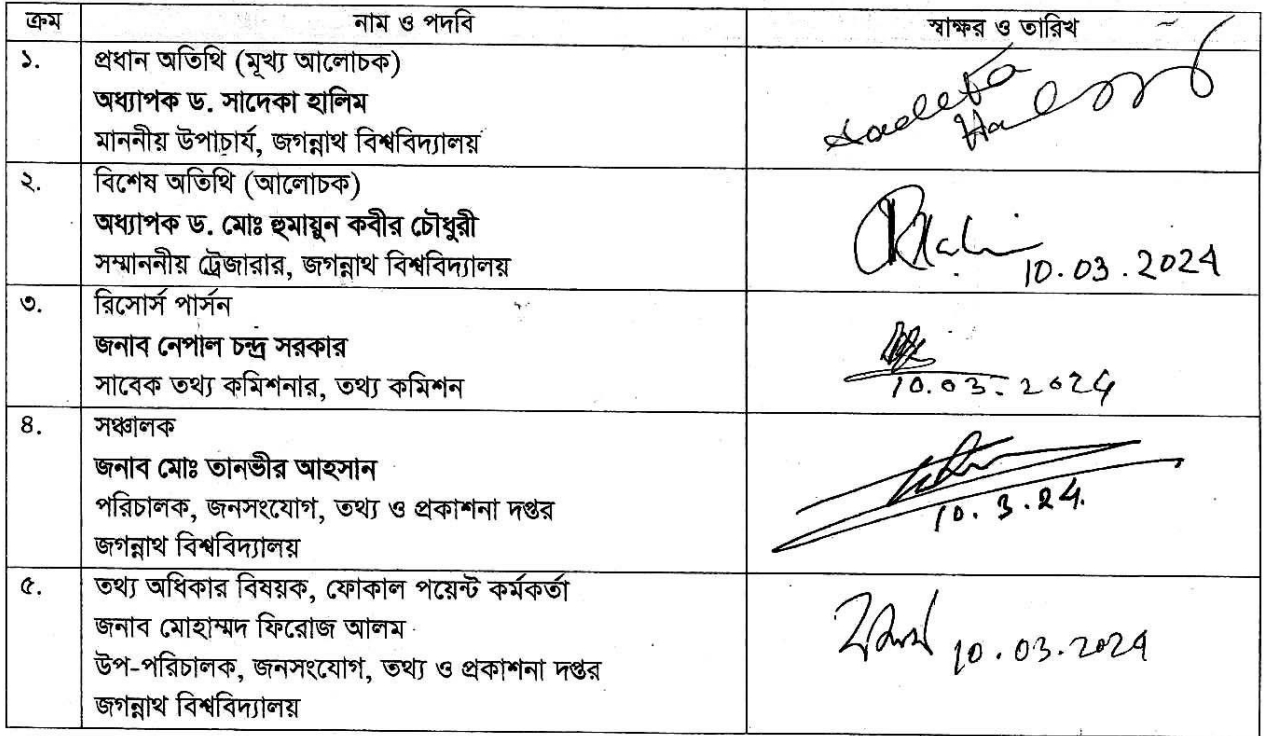 ক্রম নাম ও পদবি স্বাক্ষর ও তারিখ
১. প্রধান অতিথি (মূখ্য আলোচক)
অধ্যাপক ড. সাদেকা হালিম
মাননীয় উপাচার্য, জগন্নাথ বিশ্ববিদ্যালয়
Sadeka
Halim
২. বিশেষ অতিথি (আলোচক)
অধ্যাপক ড. মোঃ হুমায়ুন কবীর চৌধুরী
সম্মাননীয় ট্রেজারার, জগন্নাথ বিশ্ববিদ্যালয়
10.03.2024
৩. রিসোর্স পার্সন
জনাব নেপাল চন্দ্র সরকার
সাবেক তথ্য কমিশনার, তথ্য কমিশন
10.03.2024
৪. সঞ্চালক
জনাব মোঃ তানভীর আহসান
পরিচালক, জনসংযোগ, তথ্য ও প্রকাশনা দপ্তর
জগন্নাথ বিশ্ববিদ্যালয়
10.3.24.
৫. তথ্য অধিকার বিষয়ক, ফোকাল পয়েন্ট কর্মকর্তা
জনাব মোহাম্মদ ফিরোজ আলম
উপ-পরিচালক, জনসংযোগ, তথ্য ও প্রকাশনা দপ্তর
জগন্নাথ বিশ্ববিদ্যালয়
10.03.2024